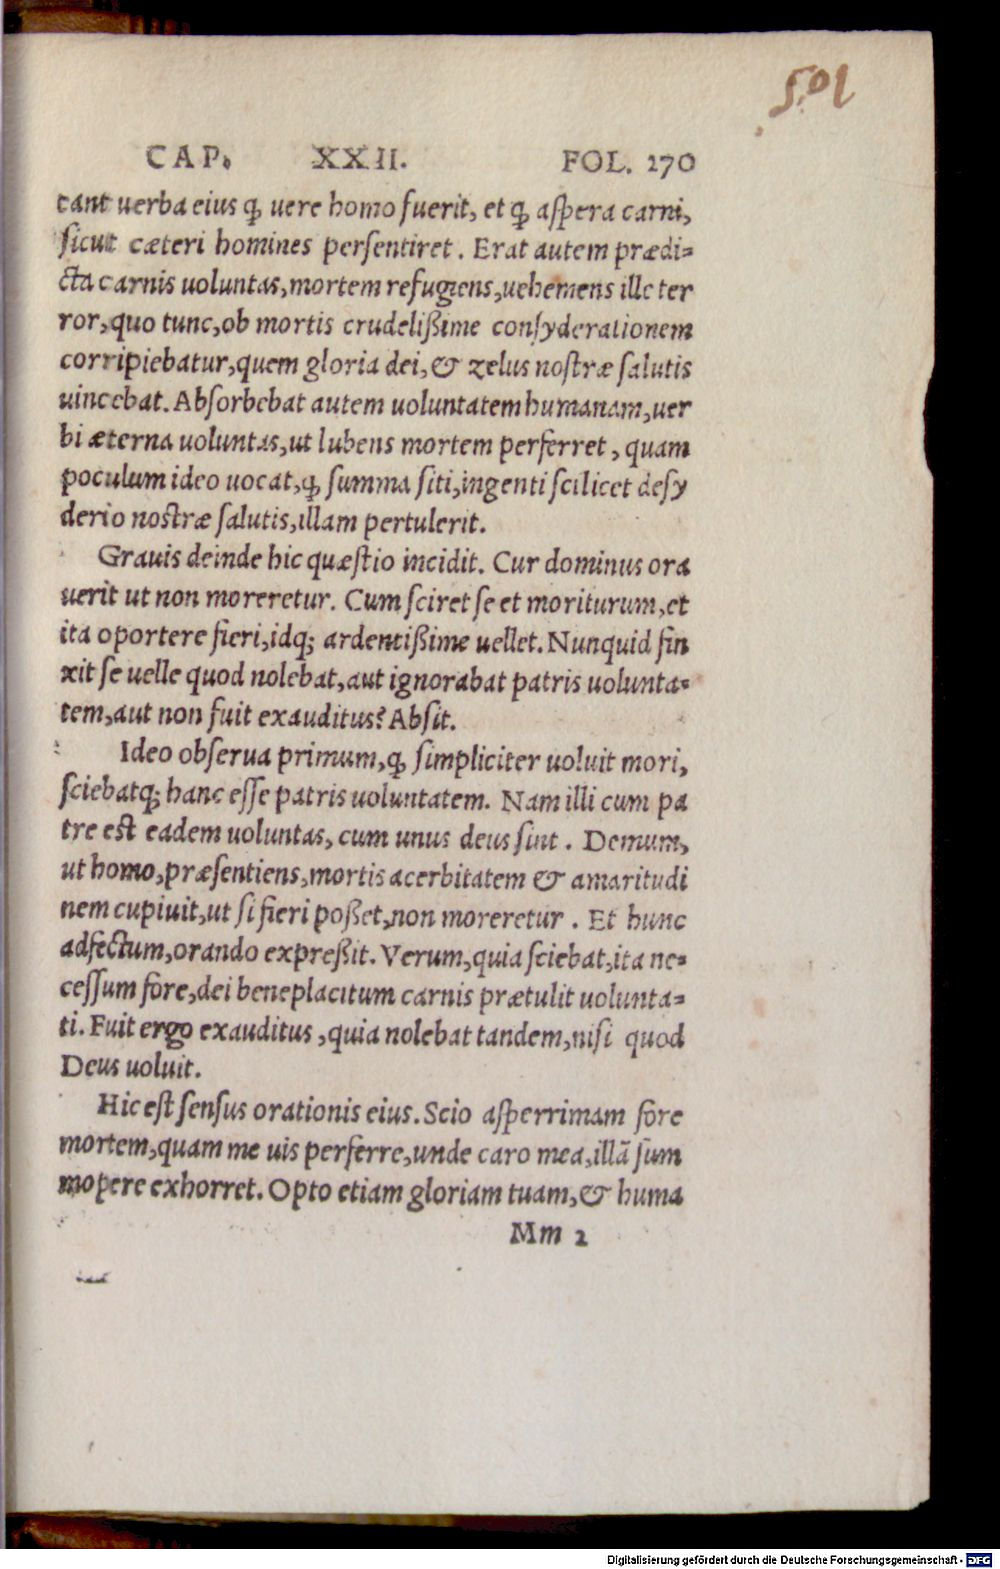 501
CAP. XXII. FOL. 170
tant uerba eius ꝙ uere homo fuerit, et ꝙ aſpera carni,
ſicut cæteri homines perſentiret. Erat autem prædi-
cta carnis uoluntas, mortem refugiens, uehemens ille ter
ror, quo tunc, ob mortis crudelißime conſyderationem
corripiebatur, quem gloria dei, & zelus noſtræ ſalutis
uincebat. Abſorbebat autem uoluntatem humanam, uer
bi æterna uoluntas, ut lubens mortem perferret, quam
poculum ideo uocat, ꝙ ſumma ſiti, ingenti ſcilicet deſy
derio noſtræ ſalutis, illam pertulerit.
Grauis deinde hic quæſtio incidit. Cur dominus ora
uerit ut non moreretur. Cum ſciret ſe et moriturum, et
ita oportere fieri, idq; ardentißime uellet. Nunquid fin
xit ſe uelle quod nolebat, aut ignorabat patris uolunta-
tem, aut non fuit exauditus? Abſit.
Ideo obſerua primum, ꝙ ſimpliciter uoluit mori,
ſciebatq; hanc eſſe patris uoluntatem. Nam illi cum pa
tre eſt eadem uoluntas, cum unus deus ſint. Demum,
ut homo, præſentiens, mortis acerbitatem & amaritudi
nem cupiuit, ut ſi fieri poßet, non moreretur. Et hunc
adfectum, orando expreßit. Verum, quia ſciebat, ita ne-
ceſſum fore, dei beneplacitum carnis prætulit uolunta-
ti. Fuit ergo exauditus, quia nolebat tandem, niſi quod
Deus uoluit.
Hic eſt ſenſus orationis eius. Scio aſperrimam fore
mortem, quam me uis perferre, unde caro mea, illā ſum
mopere exhorret. Opto etiam gloriam tuam, & huma
Mm 2
Digitalisierung gefördert durch die Deutsche Forschungsgemeinschaft - DFG